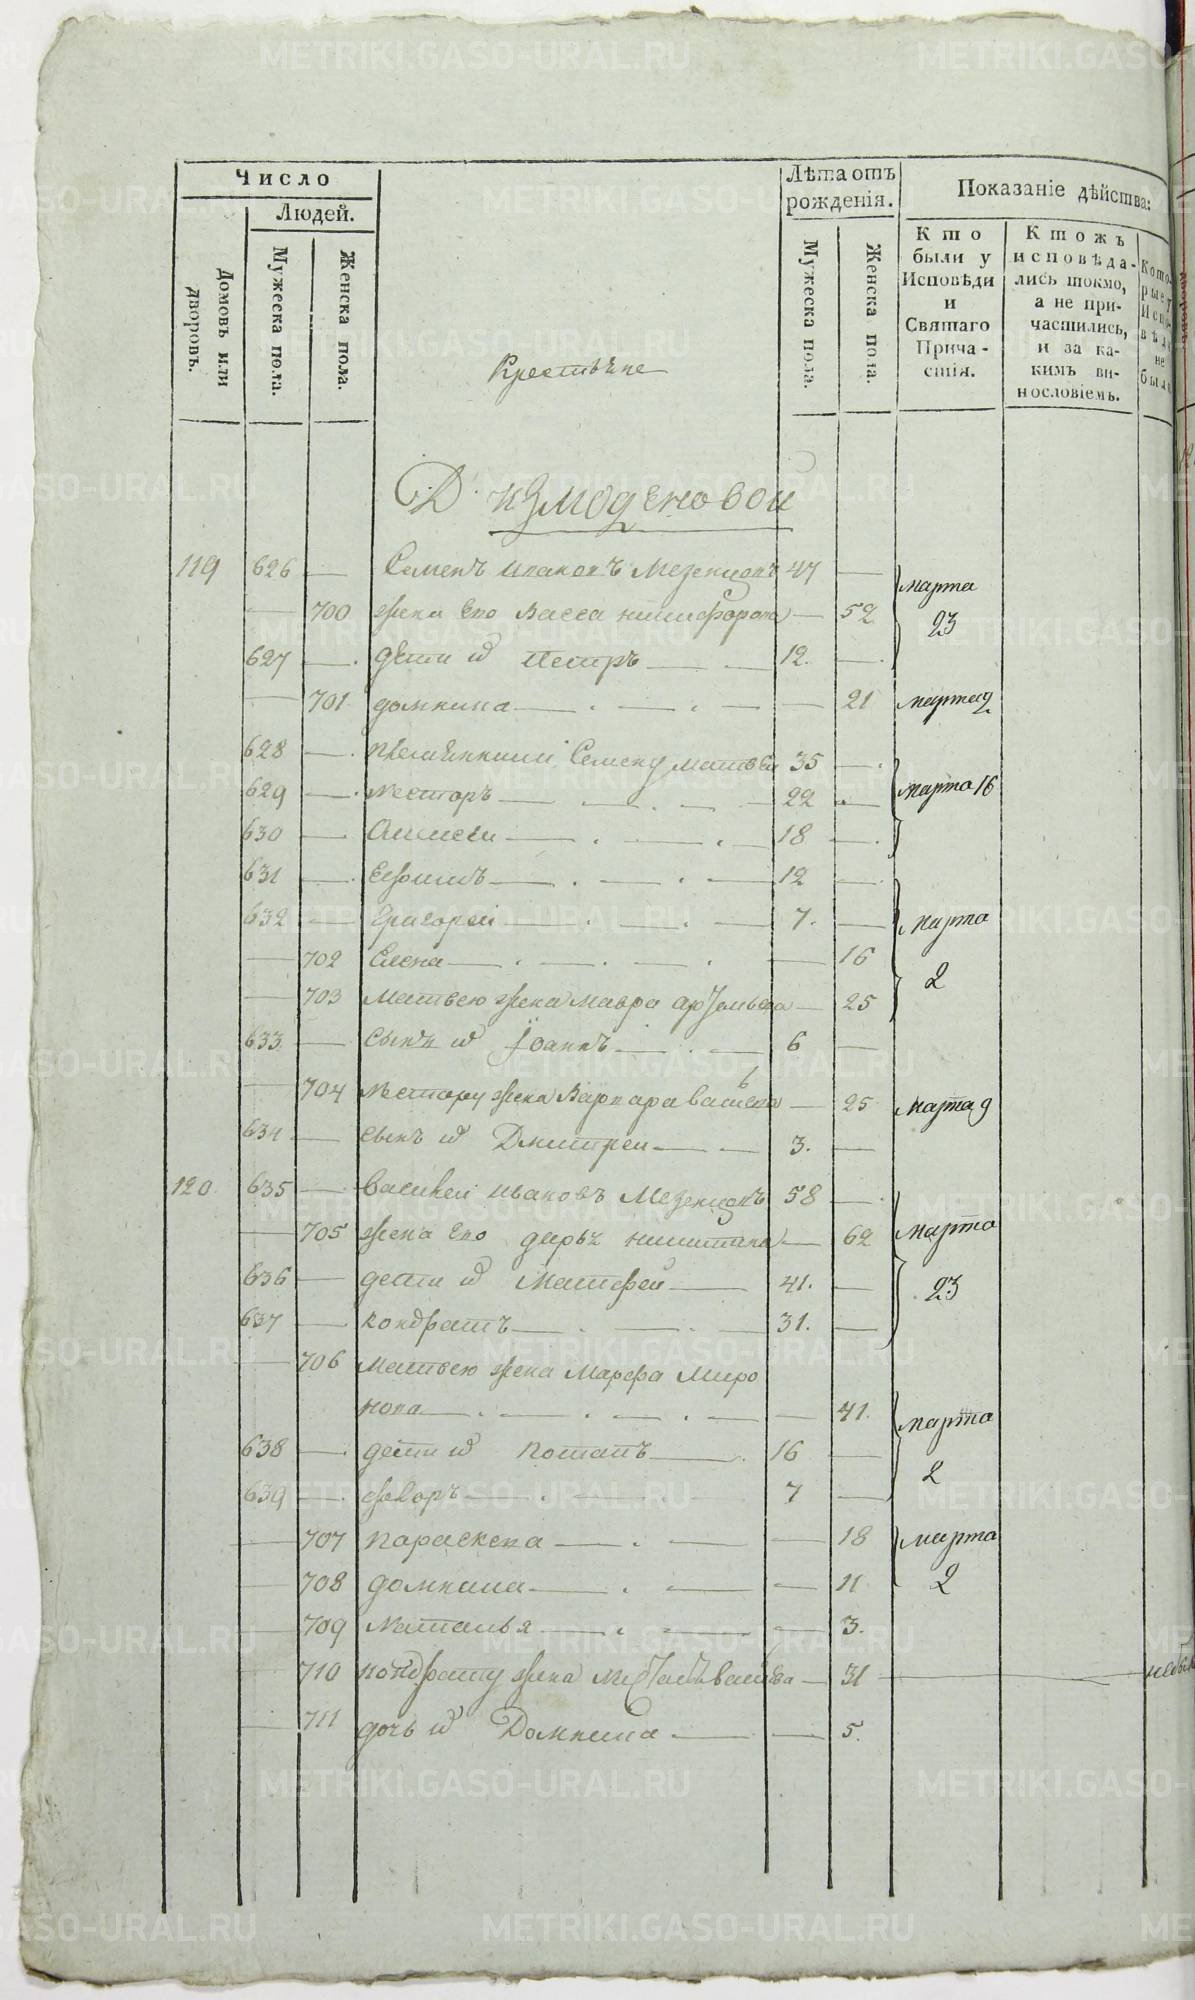 Число
Людей.
Домовъ или дворовъ.
Мужеска пола.
Женска пола.
Крестьяне
Лѣта отъ рожденія.
Мужеска пола.
Женска пола.
Показаніе дѣйства:
Кто были у Исповѣди и Святаго Причастія.
Ктожъ исповѣдались токмо, а не причастились, и за какимъ винословіемъ.
Которые у Исповѣди не были
Д. измоденовой
119 626 — Семенъ Ивановъ Мезенцовъ 47 —
— 700 жена Его Васса никифорова — 52
марта 23
627 — дѣти их Петръ — 12. —
— 701 домнина — — 21 марта 9
628 — племянники Семену матвеи 35 —
629 — Несторъ — 22 —
марта 16
630 — Алексеи — 18 —
631 — Ефимъ — 12 —
632 — Григореи — 7. —
марта 2
— 702 Елена — — 16
— 703 Матвею жена мавра — 25
633 — сынъ их Іоаннъ — 6 —
— 704 Нестору жена Варвара васильева — 25 марта 9
634 — сынъ их Дмитреи — 3. —
120 635 — василеи ивановъ Мезенцовъ 58 —
— 705 жена Его дарья никитина — 62
марта 23
636 — дети их Матфеи — 41. —
637 — кондратъ — 31. —
— 706 Матвею жена Марфа Миро
нова — — 41.
марта 2
638 — дети их потапъ — 16 —
639 — федоръ — 7 —
— 707 параскева — — 18
марта 2
— 708 домнина — — 11
— 709 Наталья — — 3.
— 710 кондрату жена — 31 —
— 711 дочь их Домнина — — 5.
METRIKI.GASO-URAL.RU